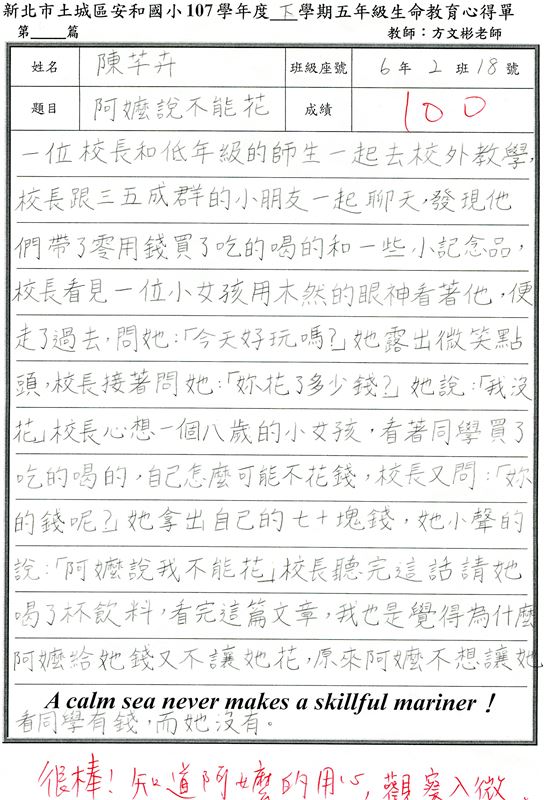 新北市土城區安和國小107學年度 下 學期五年級生命教育心得單
第____篇 教師：方文彬老師
姓名 陳芊卉 班級座號 6年2班18號
題目 阿嬤說不能花 成績 100
一位校長和低年級的師生一起去校外教學，
校長跟三五成群的小朋友一起聊天，發現他
們帶了零用錢買了吃的喝的和一些小記念品，
校長看見一位小女孩用木然的眼神看著他，便
走了過去，問她：「今天好玩嗎？」她露出微笑點
頭，校長接著問她：「妳花了多少錢？」她說：「我沒
花」校長心想一個八歲的小女孩，看著同學買了
吃的喝的，自己怎麼可能不花錢，校長又問：「妳
的錢呢？」她拿出自己的七十塊錢，她小聲的
說：「阿嬤說我不能花」校長聽完這話請她
喝了杯飲料，看完這篇文章，我也是覺得為什麼
阿嬤給她錢又不讓她花，原來阿嬤不想讓她
A calm sea never makes a skillful mariner！
看同學有錢，而她沒有。
很棒！知道阿嬤的用心，觀察入微。